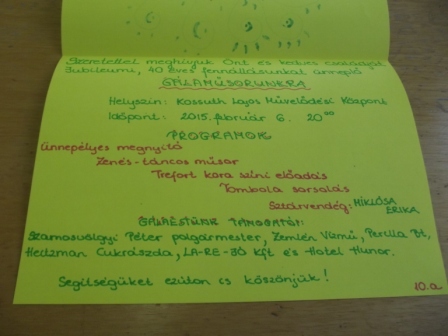 Szeretettel meghívjuk Önt és kedves családját
Jubileumi, 40 éves fennállásunkat ünneplő
GÁLAMŰSORUNKRA
Helyszín: Kossuth Lajos Művelődési Központ
Időpont: 2015. február 6. 20⁰⁰
PROGRAMOK:
Ünnepélyes megnyitó
Zenés-táncos műsor
Trefort kora színi előadás
Tombola sorsolás
Sztárvendég: MIKLÓSA
ERIKA
GÁLAESTÜNK TÁMOGATÓI:
Szamosvölgyi Péter polgármester, Zemlén Vízmű, Perilla Bt,
Heizman Cukrászda, LA-RE-BÓ Kft és Hotel Hunor.
Segítségüket ezúton is köszönjük!
10.a